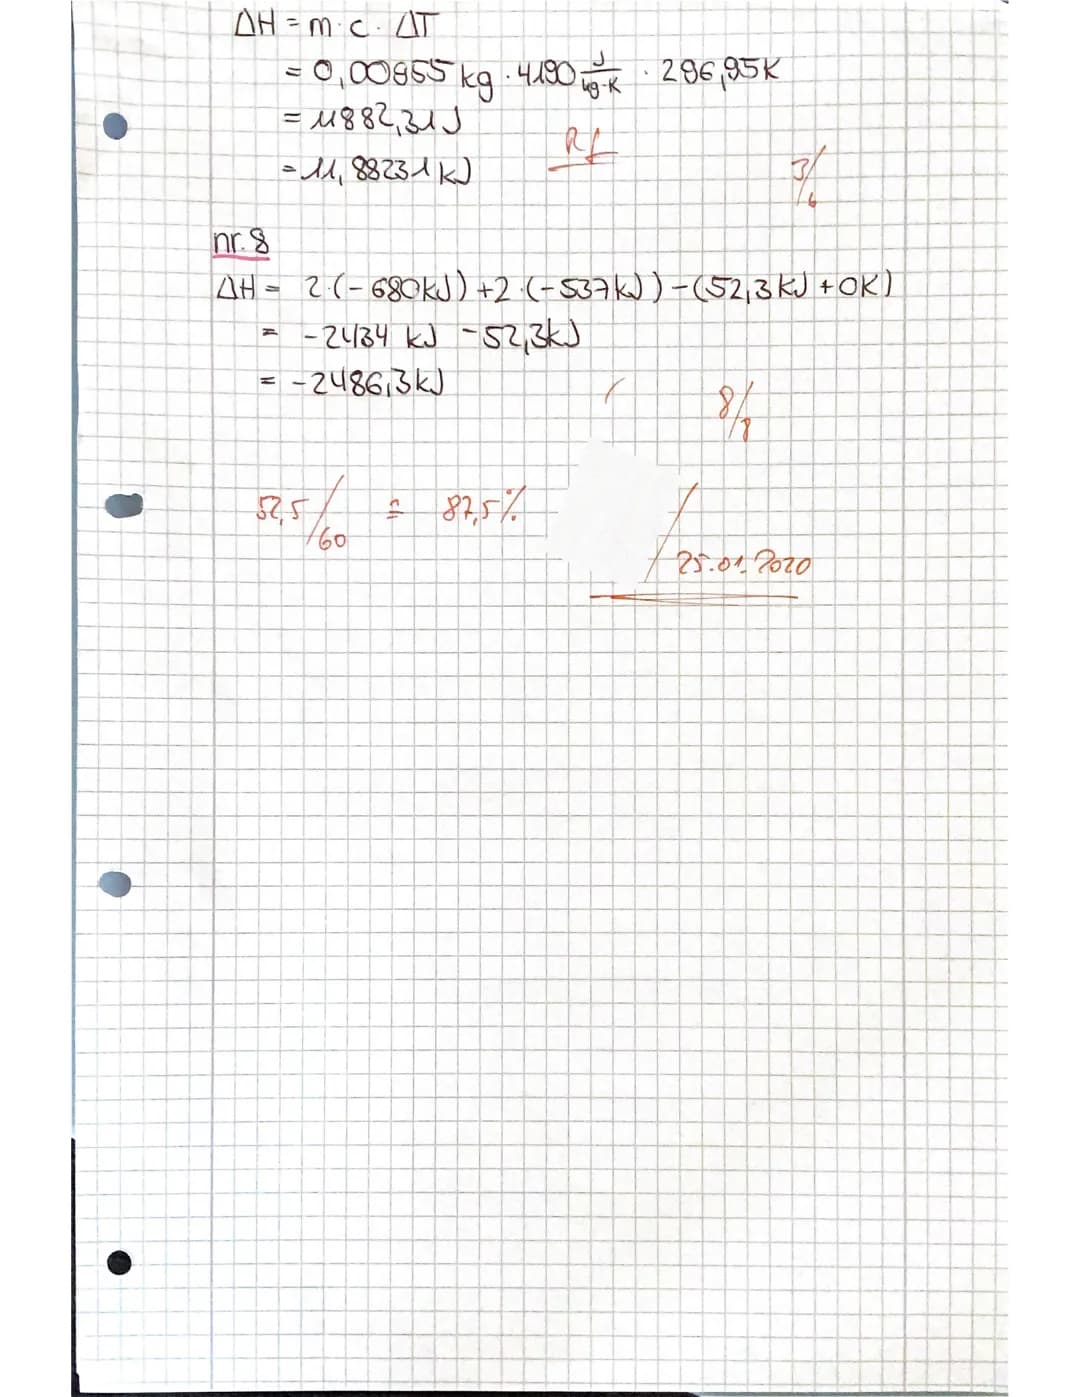 ΔH = m·c·ΔT
= 0,00955 kg · 4190 J/kg·K · 296,95K
= 11882,31J
= 11,88231 kJ
Rf
3/6
nr. 8
ΔH = 2·(-680kJ) + 2·(-537kJ) - (52,3 kJ + 0K)
= -2434 kJ - 52,3kJ
= -2486,3kJ
8/8
52,5/60 ≙ 87,5%
25.01.2020